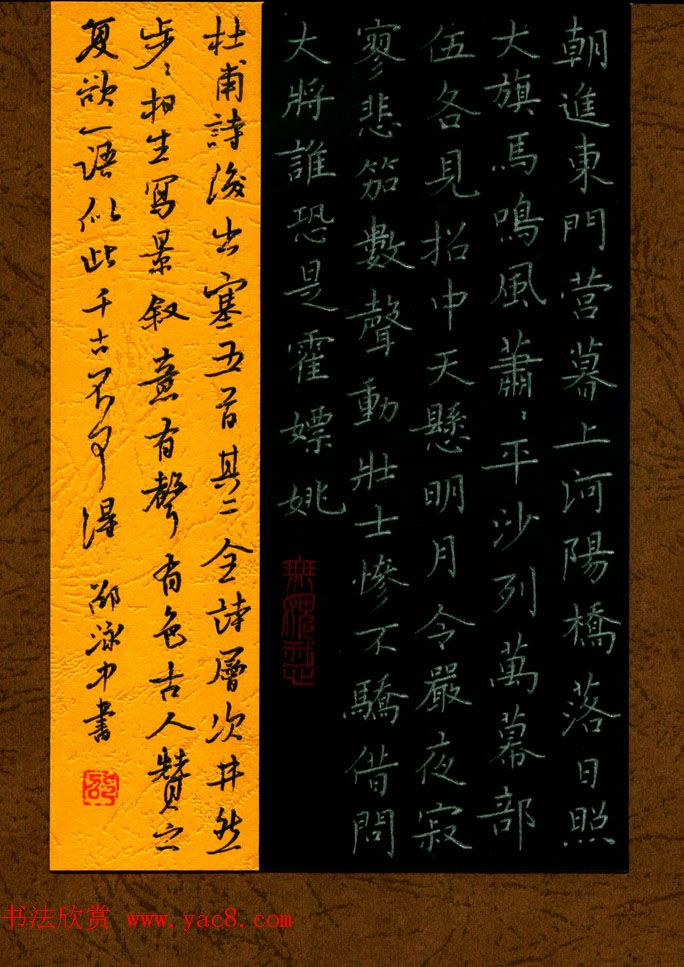 朝進東門营暮上河陽橋落日照
大旗馬鳴風蕭〻平沙列萬幕部
伍各見招中天懸明月令嚴夜寂
寥悲笳數聲動壯士慘不驕借問
大將誰恐是霍嫖姚
杜甫詩後出塞五首其二全詩層次井然
步〻相生寫景叙意有聲有色古人贊之
复欲一語似此千古不可得 邵泳中書
邵
书法欣赏 www.yac8.com